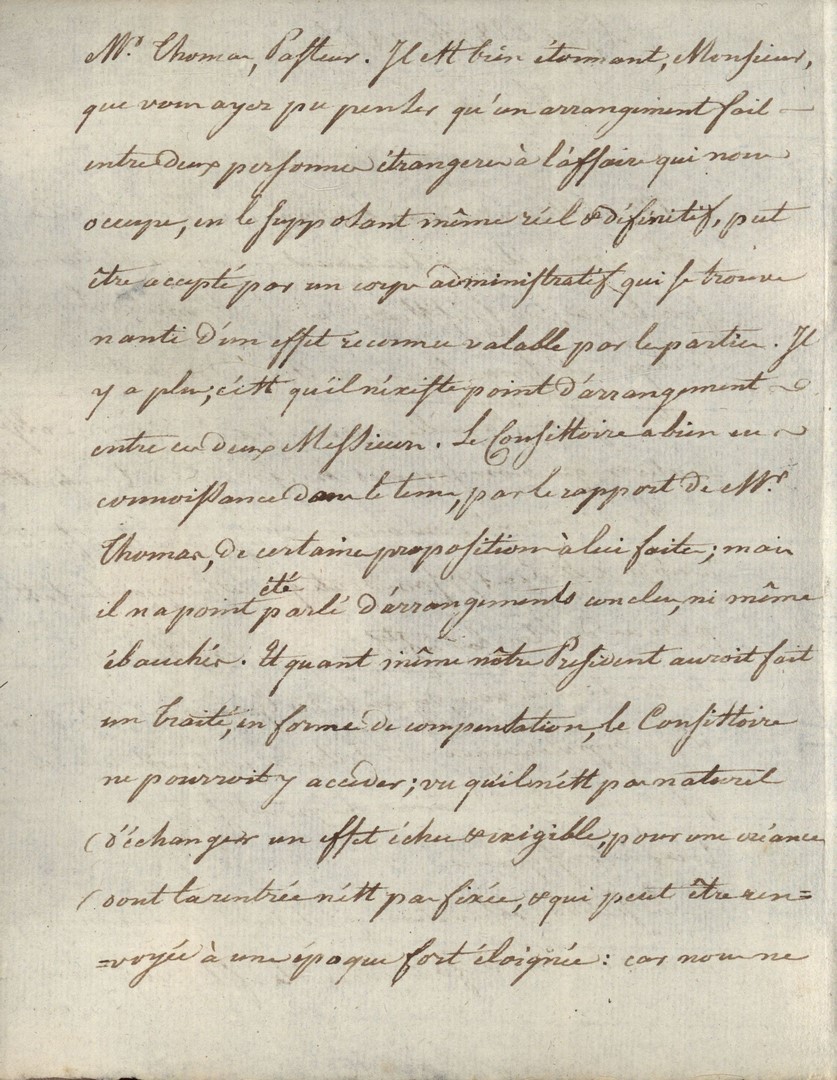 Mr. Thomas, Pasteur. Il est bien étonnant, Monsieur,
que vous ayez pu penser qu'un arrangement fait
entre deux personnes étrangeres à l'affaire qui nous
occupe, en le supposant même réel & définitif, put
être accepté par un corps administratif qui se trouve
nanti d'un effet reconnu valable par les parties. Il
y a plus; c'est qu'il n'éxiste point d'arrangement
entre ces deux Messieurs. Le Consistoire a bien eu
connoissance dans le tems, par le rapport de Mr.
Thomas, de certaines propositions à lui faites; mais
il n'a point été parlé d'arrangements conclus, ni même
ébauchés. Et quant même nôtre Président auroit fait
un traité, en forme de compensation, le Consistoire
ne pourroit y accéder; vu qu'il n'est pas naturel
d'échanger un effet échu & exigible, pour une créance
dont la rentrée n'est pas fixée, & qui peut être ren=
=voyée à une époque fort éloignée: car nous ne